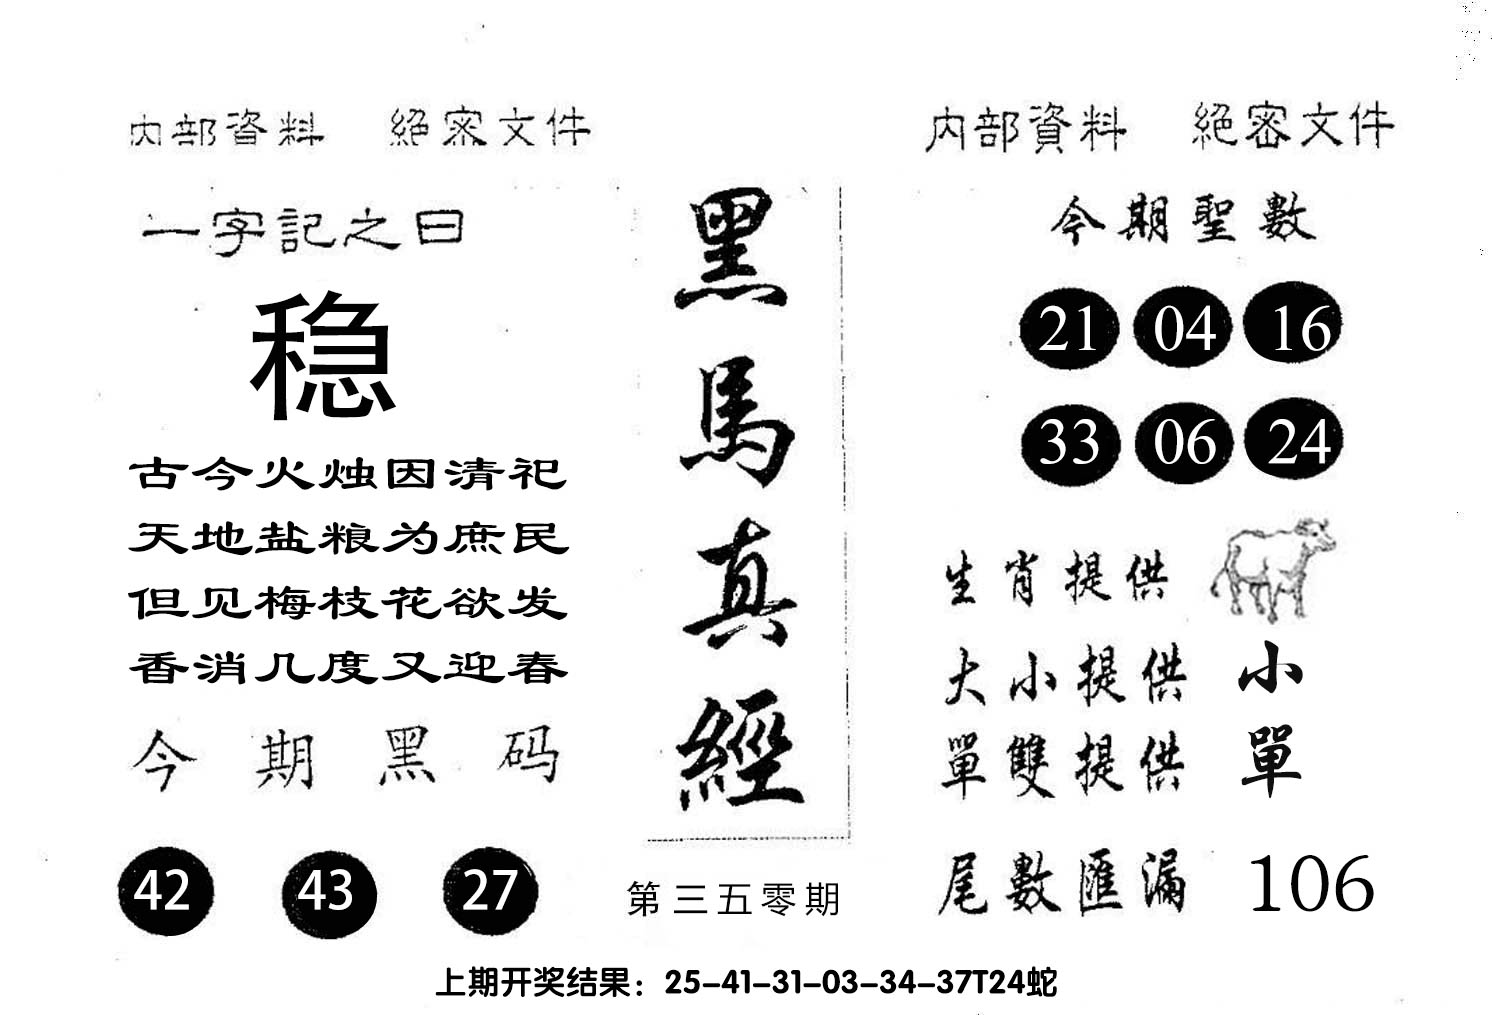 内部資料 絕密文件
一字記之曰
稳
古今火烛因清祀
天地盐粮为庶民
但见梅枝花欲发
香消几度又迎春
今期黑码
42 43 27
黑馬真經
第三五零期
内部資料 絕密文件
今期聖數
21 04 16
33 06 24
生肖提供
大小提供 小
單雙提供 單
尾數匯漏 106
上期开奖结果：25-41-31-03-34-37T24蛇